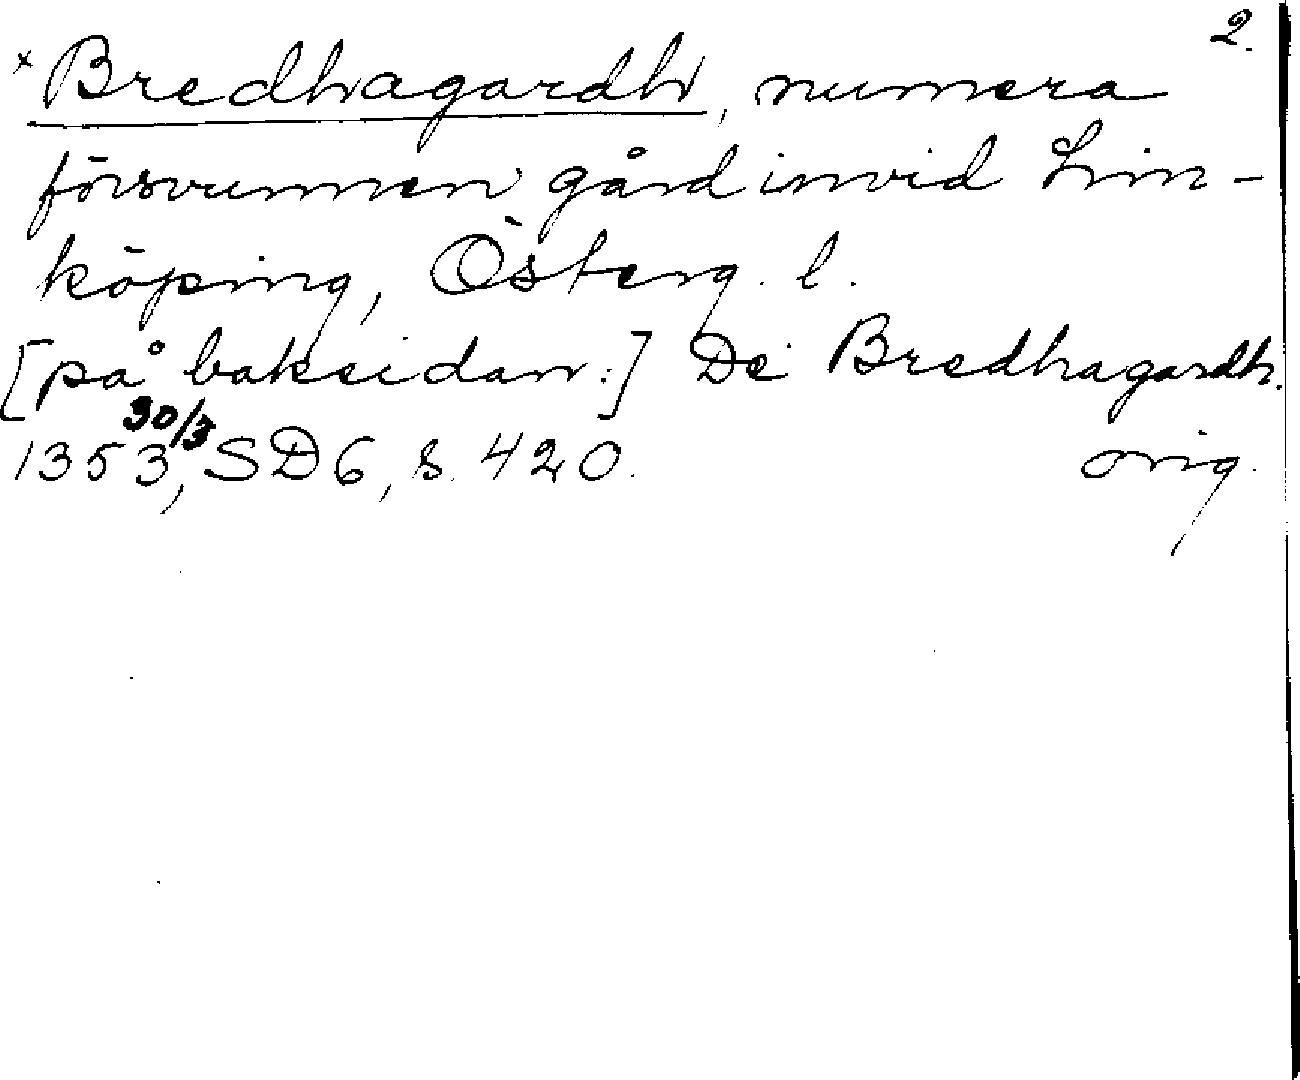 2.
× Bredhagardh, numera
försvunnen gård invid Lin-
köping, Österg. l.
[på baksidan:] De Bredhagardh.
1353 30/3, SD 6, s. 420. orig.